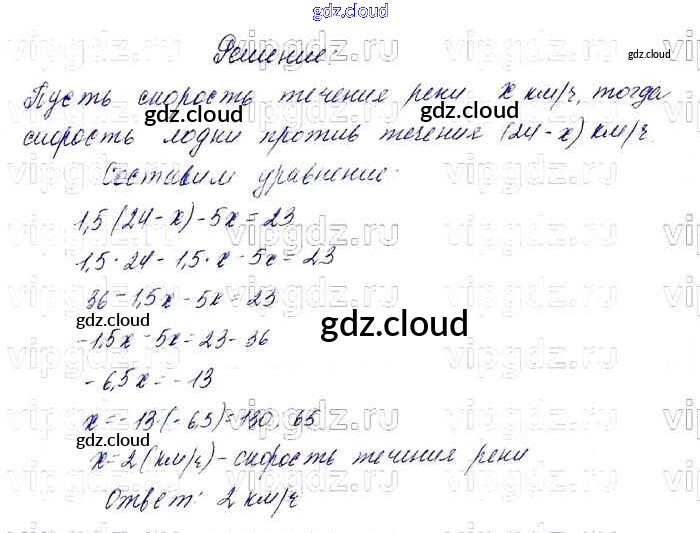 gdz.cloud
Решение.
gdz.cloud
Пусть скорость течения реки x км/ч, тогда
gdz.cloud gdz.cloud
скорость лодки против течения (24-x) км/ч.
Составим уравнение:
1,5(24-x)-5x=23
gdz.cloud
1,5·24-1,5·x-5x=23
36-1,5x-5x=23
gdz.cloud gdz.cloud
-1,5x-5x=23-36
-6,5x=-13
x=-13:(-6,5)=130:65
gdz.cloud
x=2(км/ч)-скорость течения реки
Ответ: 2 км/ч
vipgdz.ru